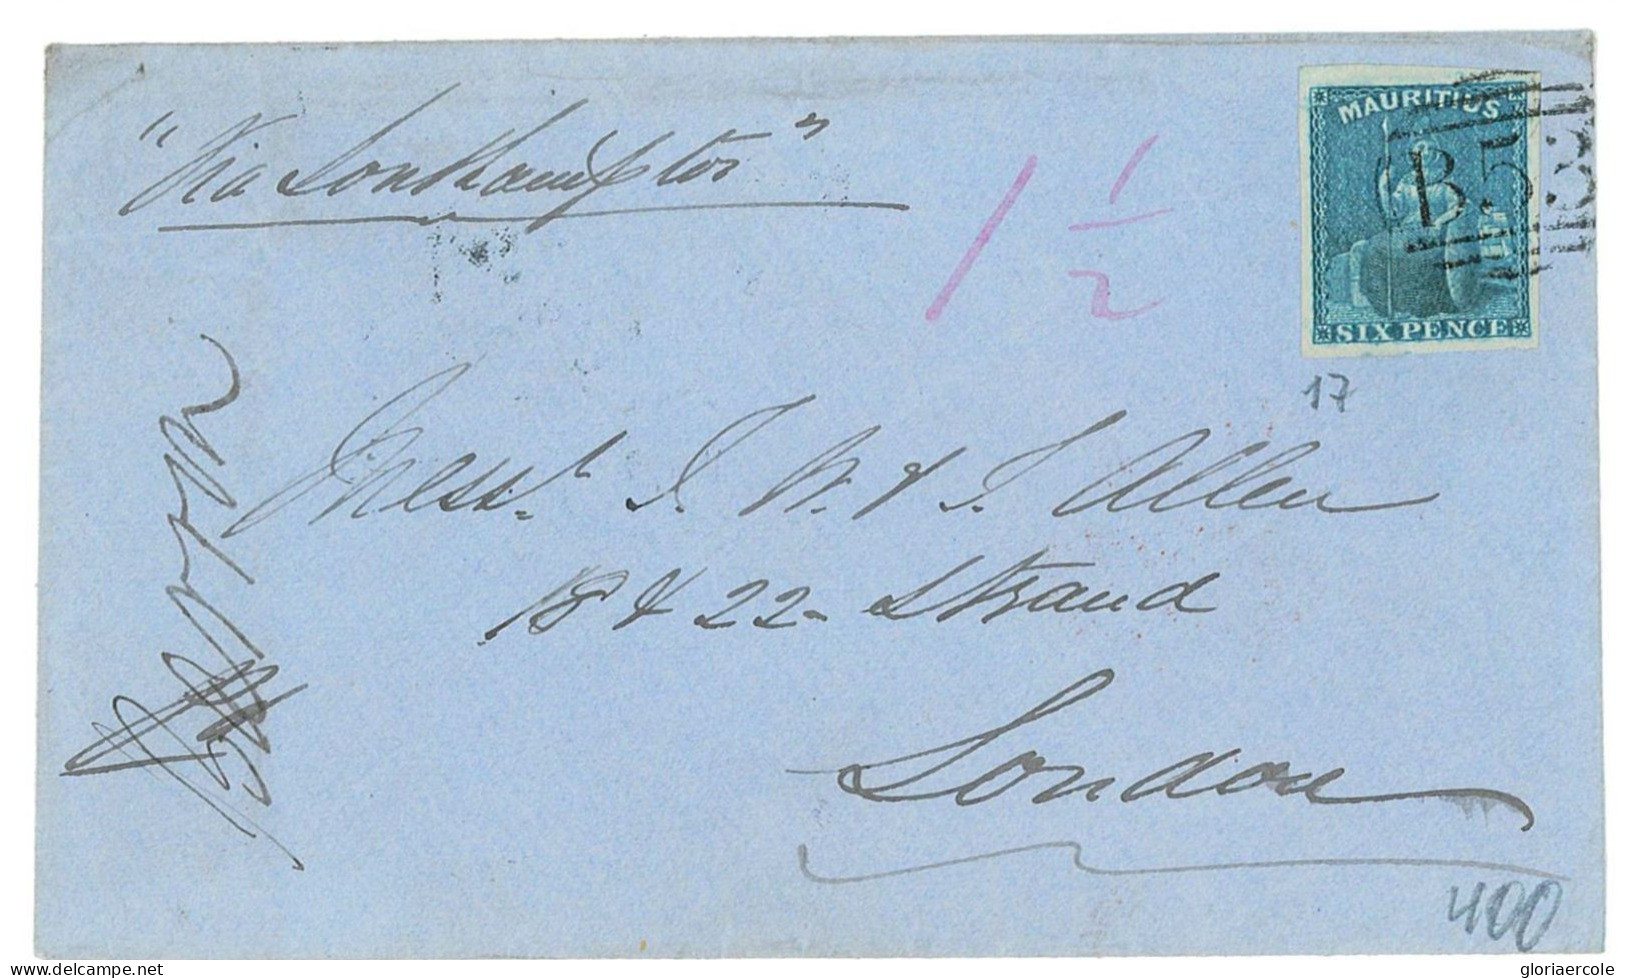 "Via Southampton"
1 1/2
MAURITIUS
B.53
SIX PENCE
17
Messrs. J. W. & T. Allen
18 & 22 - Strand
London
400
delcampe.net
gloriaercole